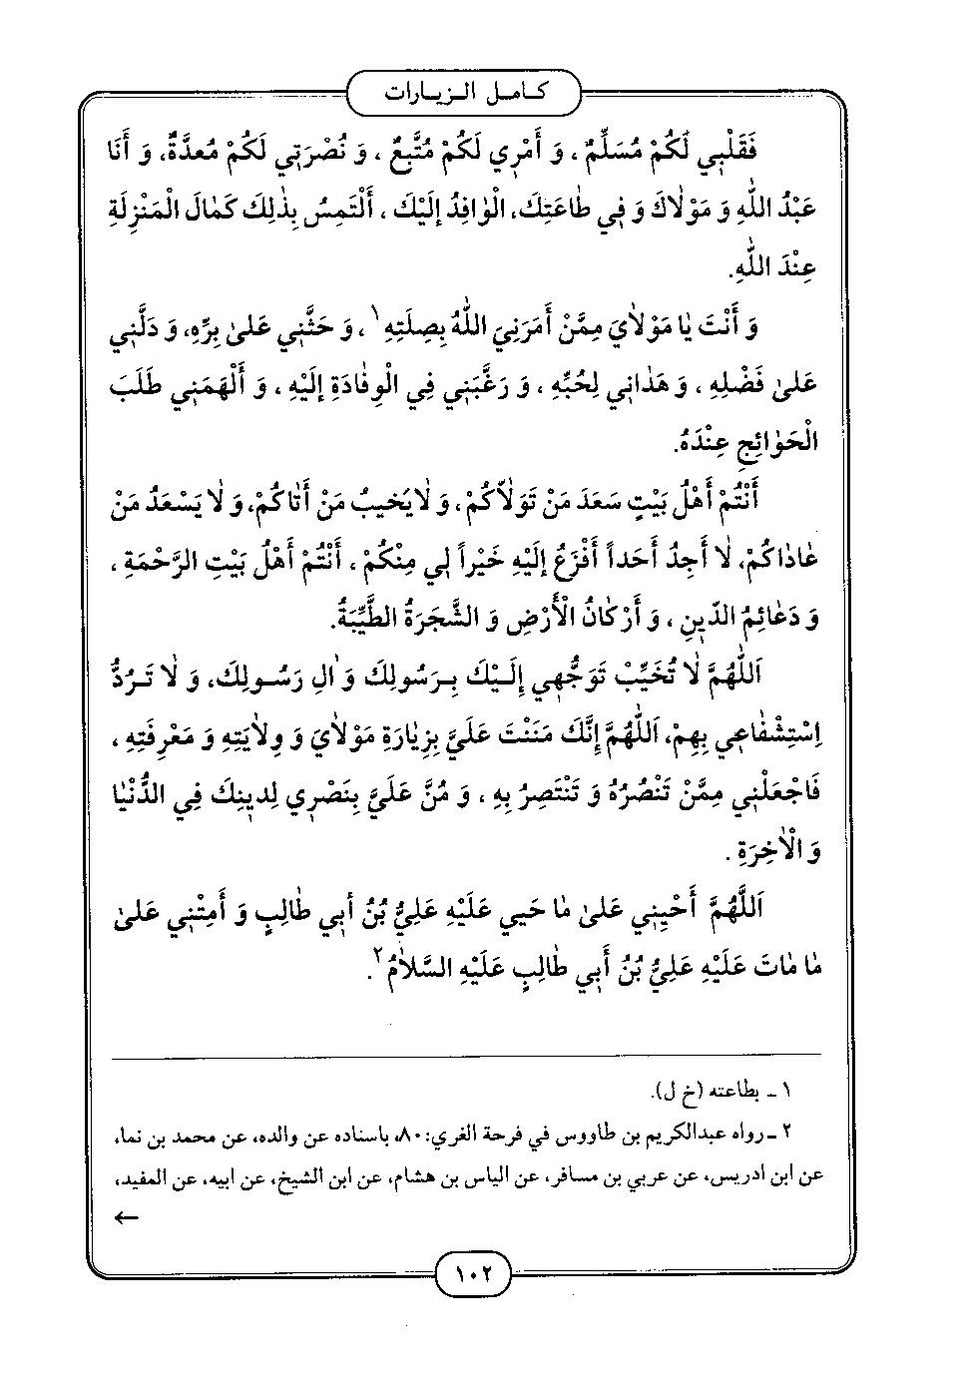 كامل الزيارات
فَقَلْبِي لَكُمْ مُسَلِّمٌ ، وَ أَمْرِي لَكُمْ مُتَّبِعٌ ، وَ نُصْرَتِي لَكُمْ مُعدَّةٌ، وَ أَنَا
عَبْدُ اللّٰهِ وَ مَوْلاٰكَ وَ فِي طٰاعَتِكَ، الْوٰافِدُ إِلَيْكَ ، أَلْتَمِسُ بِذٰلِكَ كَمٰالَ الْمَنْزِلَةِ
عِنْدَ اللّٰهِ.
وَ أَنْتَ يٰا مَوْلاٰيَ مِمَّنْ أَمَرَنِيَ اللّٰهُ بِصِلَتِهِ ١ ، وَ حَثَّنِي عَلىٰ بِرِّهِ، وَ دَلَّنِي
عَلىٰ فَضْلِهِ ، وَ هَدٰانِي لِحُبِّهِ ، وَ رَغَّبَنِي فِي الْوِفٰادَةِ إِلَيْهِ ، وَ أَلْهَمَنِي طَلَبَ
الْحَوٰائِجِ عِنْدَهُ.
أَنْتُمْ أَهْلُ بَيْتٍ سَعَدَ مَنْ تَوَلاّٰكُمْ، وَ لاٰ يَخيبُ مَنْ أَتٰاكُمْ، وَ لاٰ يَسْعَدُ مَنْ
عٰادٰاكُمْ، لاٰ أَجِدُ أَحَداً أَفْزَعُ إِلَيْهِ خَيْراً لِي مِنْكُمْ ، أَنْتُمْ أَهْلُ بَيْتِ الرَّحْمَةِ ،
وَ دَعٰائِمُ الدّينِ ، وَ أَرْكٰانُ الْأَرْضِ وَ الشَّجَرَةُ الطَّيِّبَةُ.
اَللّٰهُمَّ لاٰ تُخَيِّبْ تَوَجُّهِي إِلَيْكَ بِرَسُولِكَ وَ اٰلِ رَسُولِكَ، وَ لاٰ تَرُدُّ
اِسْتِشْفٰاعِي بِهِمْ، اَللّٰهُمَّ إِنَّكَ مَنَنْتَ عَلَيَّ بِزِيٰارَةِ مَوْلاٰيَ وَ وِلاٰيَتِهِ وَ مَعْرِفَتِهِ ،
فَاجْعَلْنِي مِمَّنْ تَنْصُرُهُ وَ تَنْتَصِرُ بِهِ ، وَ مُنَّ عَلَيَّ بِنَصْرِي لِدينِكَ فِي الدُّنْيٰا
وَ الْاٰخِرَةِ .
اَللَّهُمَّ أَحْيِنِي عَلىٰ مٰا حَيي عَلَيْهِ عَلِيُّ بُنُ أَبي طٰالِبٍ وَ أَمِتْنِي عَلىٰ
مٰا مٰاتَ عَلَيْهِ عَلِيُّ بُنُ أَبي طٰالِبٍ عَلَيْهِ السَّلاٰمُ ٢.
١ ـ بطاعته (خ ل).
٢ ـ رواه عبدالكريم بن طاووس في فرحة الغري: ٨٠، باسناده عن والده، عن محمد بن نما،
عن ابن ادريس، عن عربي بن مسافر، عن الياس بن هشام، عن ابن الشيخ، عن ابيه، عن المفيد،
←
١٠٢